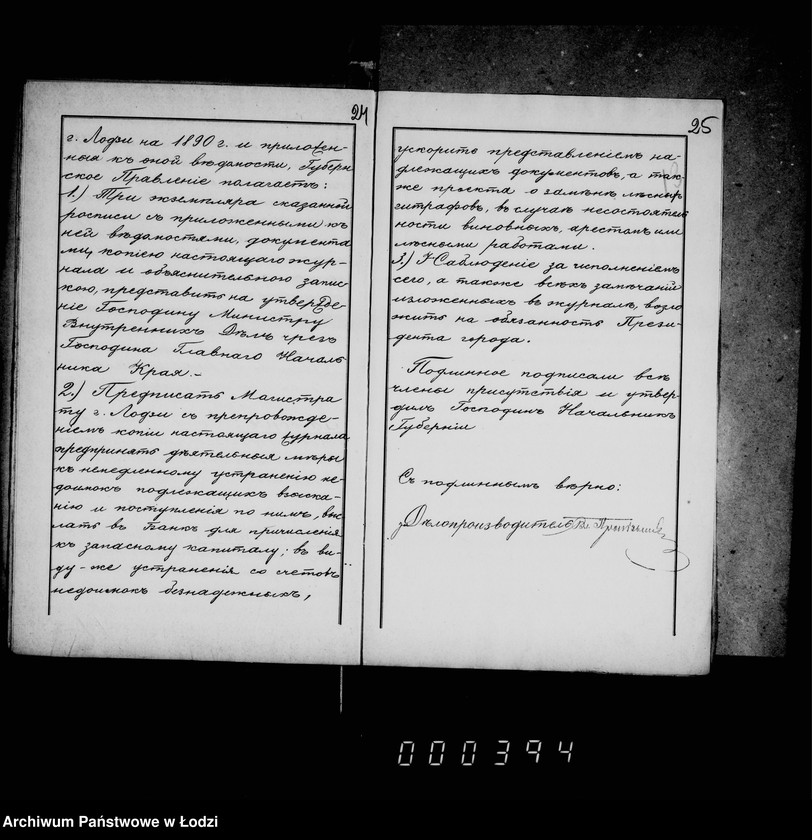 24
г. Лодзи на 1890 г. и приложен-
ныя къ оной вѣдомости, Губерн
ское Правленіе полагаетъ:
1.) Три экземпляра сказанной
росписи съ приложенными къ
ней вѣдомостями, документа
ми, копіею настоящаго жур-
нала и объяснительною запис
кою, представить на утвержде-
ніе Господину Министру
Внутреннихъ Дѣлъ чрезъ
Господина Главнаго Началь
ника Края.-
2.) Предписать Магистра
ту г. Лодзи съ препровожде-
ніемъ копіи настоящаго журнала
предпринять дѣятельныя мѣры
къ немедленному устраненію не-
доимокъ подлежащихъ взыска-
нію и поступленія по нимъ, выс
лать въ Банкъ для причисленія
къ запасному капиталу; въ ви-
ду-же устраненія со счетовъ
недоимокъ безнадежныхъ,
25
ускорить представленіемъ на-
длежащихъ документовъ, а так-
же проекта о замѣнѣ лѣсныхъ
штрафовъ, въ случаѣ несостоятель
ности виновныхъ, арестомъ или
лѣсными работами.
3.) Наблюденіе за исполненіемъ
сего, а также всѣхъ замѣчаній
изложенныхъ въ журналѣ, возло
жить на обязанность Прези-
дента города.
Подлинное подписали всѣ
члены присутствія и утвер-
дилъ Господинъ Начальникъ
Губерніи
Съ подлиннымъ вѣрно:
Дѣлопроизводитель
000394
Archiwum Państwowe w Łodzi